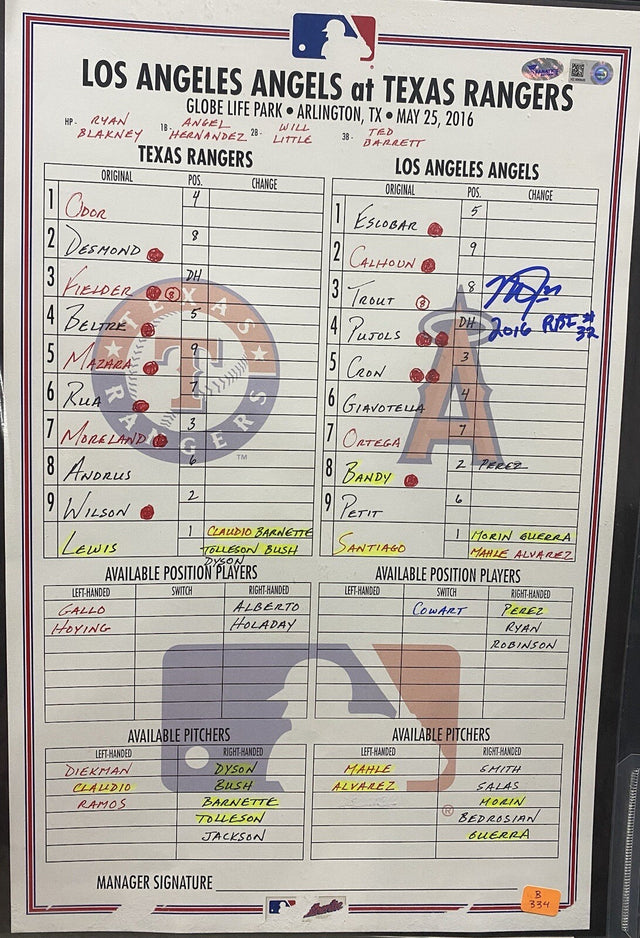 LOS ANGELES ANGELS at TEXAS RANGERS
GLOBE LIFE PARK • ARLINGTON, TX • MAY 25, 2016
HP- RYAN BLAKNEY 1B- ANGEL HERNANDEZ 2B- WILL LITTLE 3B- TED BARRETT
TEXAS RANGERS
ORIGINAL POS. CHANGE
1 ODOR 4
2 DESMOND 8
3 FIELDER 8 DH
4 BELTRE 5
5 MAZARA 9
6 RUA 7
7 MORELAND 3
8 ANDRUS 6
9 WILSON 2
LEWIS 1 CLAUDIO BARNETTE
TOLLESON BUSH
DYSON
TEXAS
RANGERS
TM
LOS ANGELES ANGELS
ORIGINAL POS. CHANGE
1 ESCOBAR 5
2 CALHOUN 9
3 TROUT 8 8
2016 RBI #32
4 PUJOLS DH
5 CRON 3
6 GIAVOTELLA 4
7 ORTEGA 7
8 BANDY 2 PEREZ
9 PETIT 6
SANTIAGO 1 MORIN GUERRA
MAHLE ALVAREZ
AVAILABLE POSITION PLAYERS
LEFT-HANDED SWITCH RIGHT-HANDED
GALLO ALBERTO
HOYING HOLADAY
AVAILABLE POSITION PLAYERS
LEFT-HANDED SWITCH RIGHT-HANDED
COWART PEREZ
RYAN
ROBINSON
AVAILABLE PITCHERS
LEFT-HANDED RIGHT-HANDED
DIEKMAN DYSON
CLAUDIO BUSH
RAMOS BARNETTE
TOLLESON
JACKSON
AVAILABLE PITCHERS
LEFT-HANDED RIGHT-HANDED
MAHLE SMITH
ALVAREZ SALAS
MORIN
BEDROSIAN
GUERRA
®
MANAGER SIGNATURE
B
334